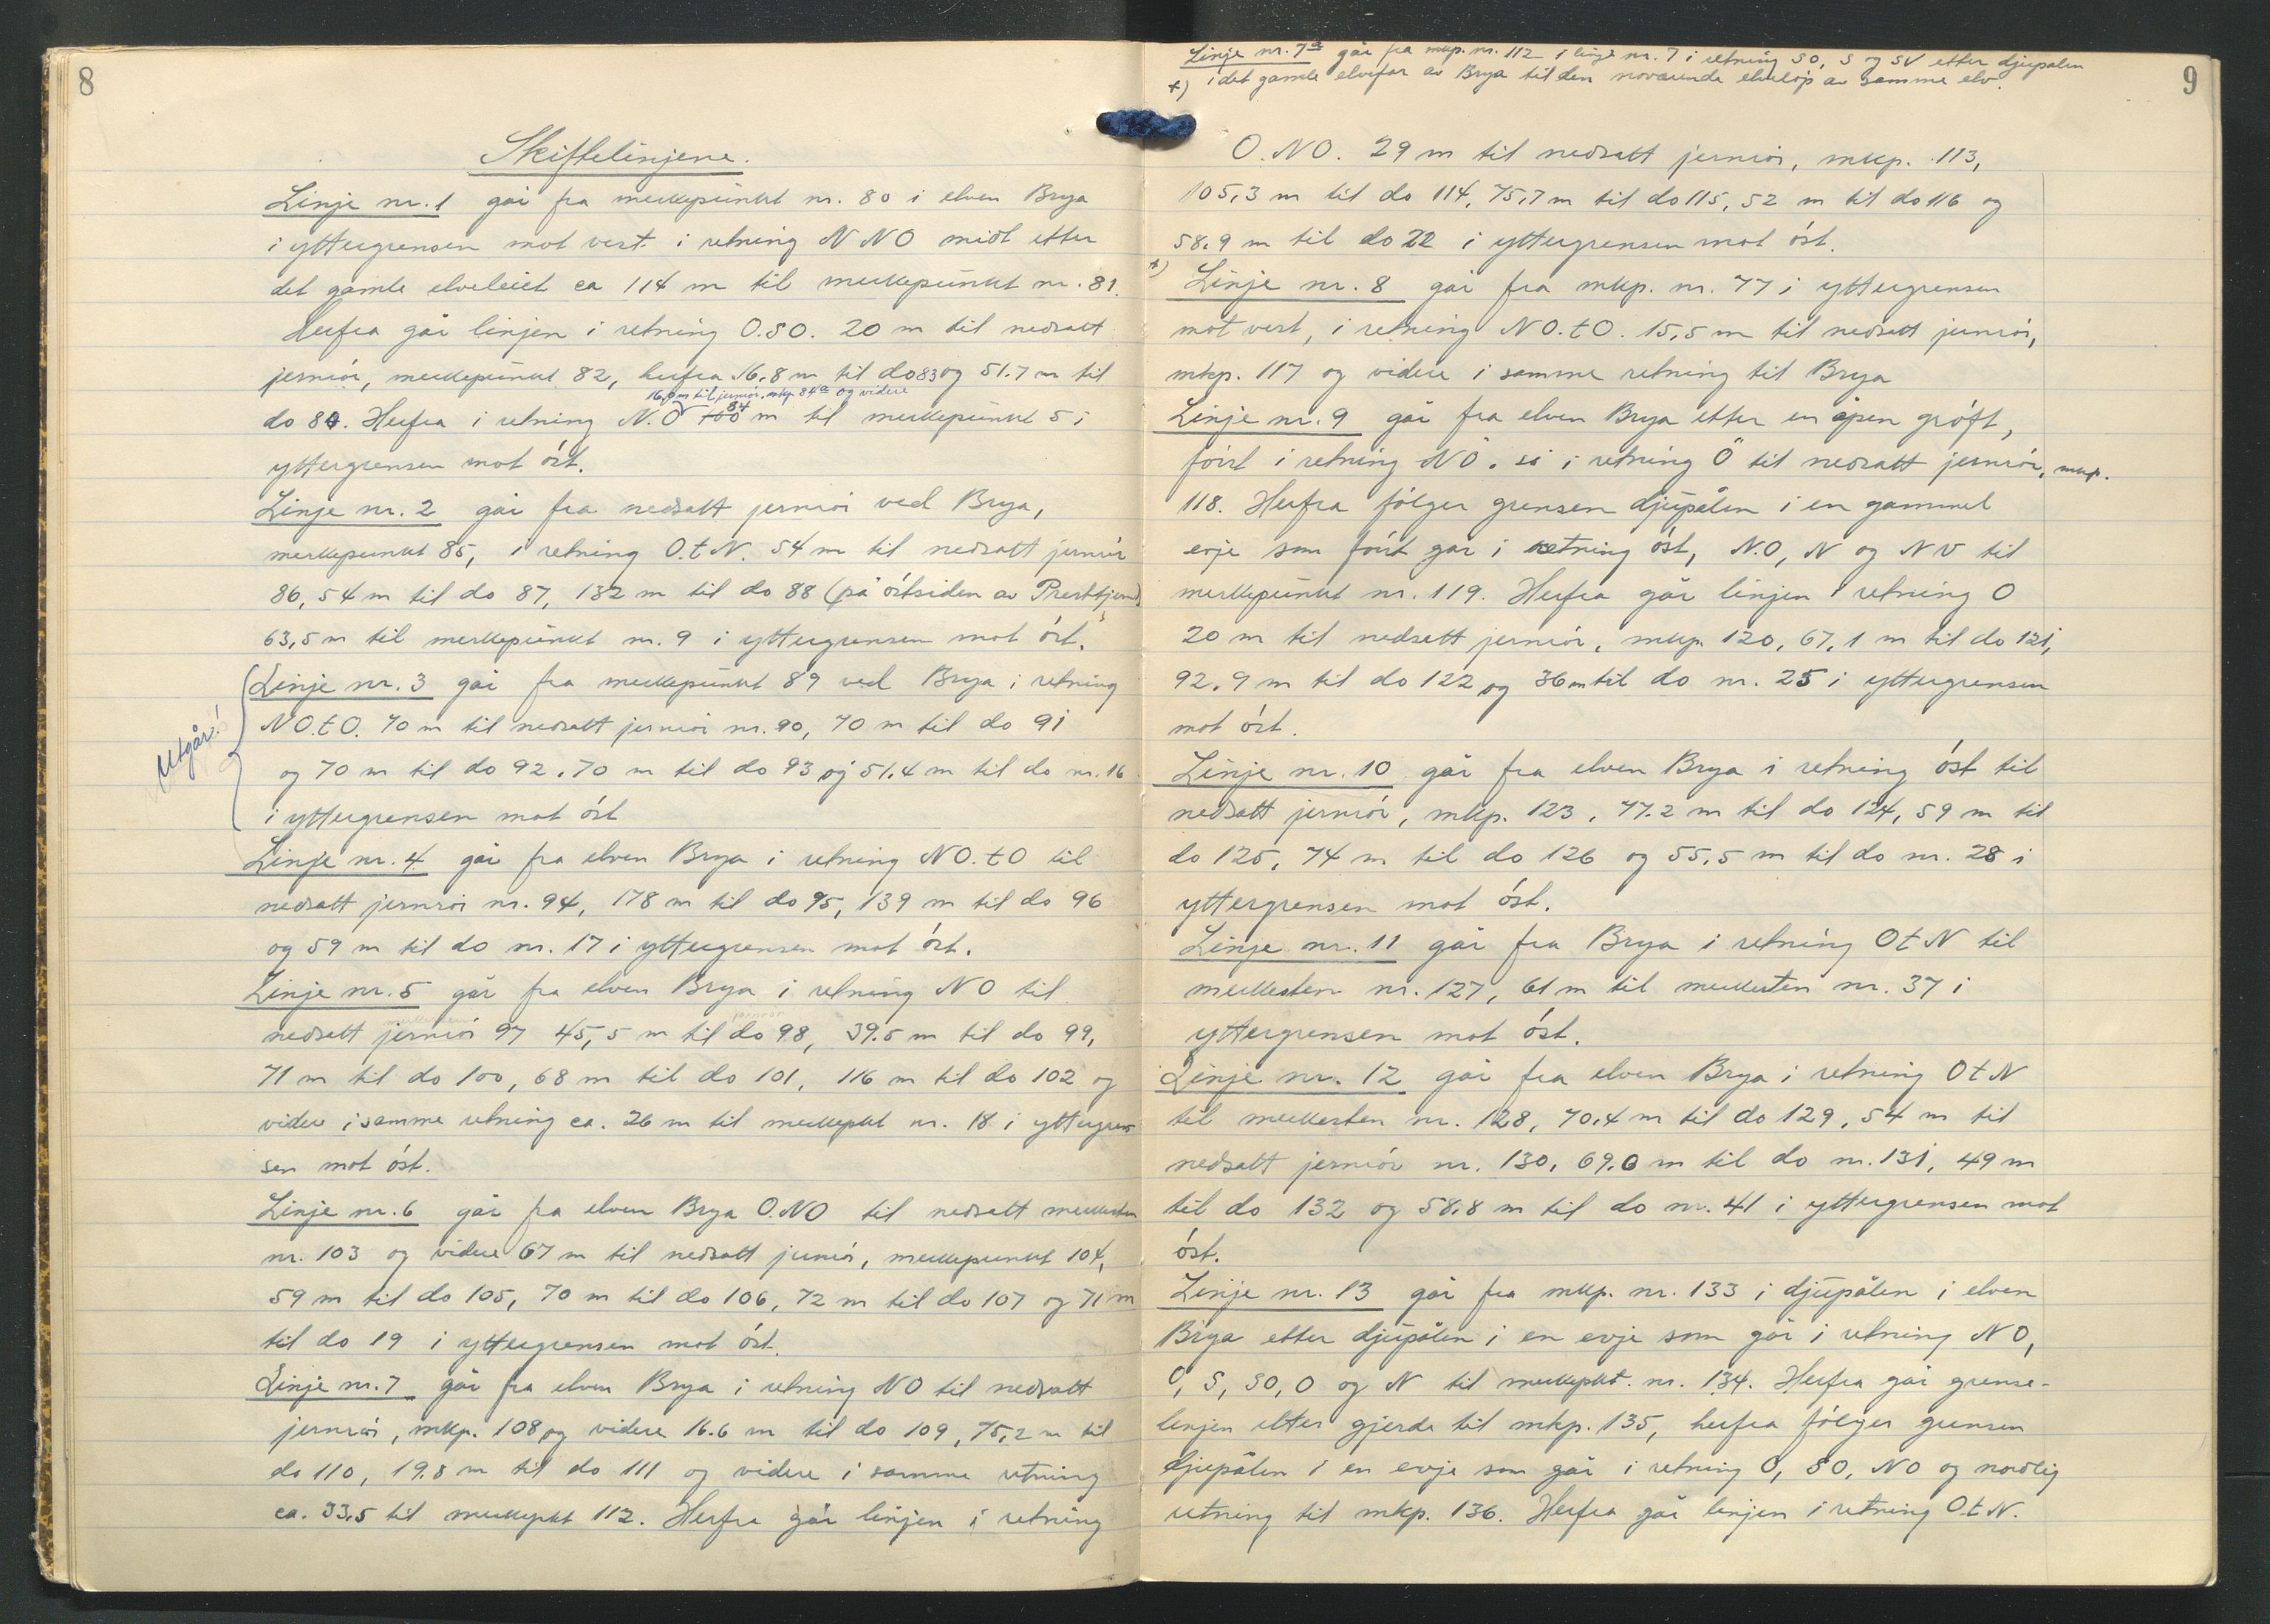 8
Skiftelinjene.
Linje nr. 1 går fra merkepunkt nr. 80 i elven Brya
i yttergrensen mot vest i retning N NO midt etter
det gamle elveleiet ca 114 m til merkepunkt nr. 81.
Herfra går linjen i retning O.SO. 20 m til nedsatt
jernrör, merkepunkt 82, herfra 16,8 m til do 83 og 51.7 m til
16,0 m til jernrör, mkp. 84a og videre
do 84. Herfra i retning N.O 100 84 m til merkepunkt 5 i
yttergrensen mot öst.
Linje nr. 2 går fra nedsatt jernrör ved Brya,
merkepunkt 85, i retning O.t.N. 54 m til nedsatt jernrör
86, 54 m til do 87, 132 m til do 88 (på östsiden av Presttjern)
63,5 m til merkepunkt nr. 9 i yttergrensen mot öst.
Utgår!
Linje nr. 3 går fra merkepunkt 89 ved Brya i retning
NO.t.O. 70 m til nedsatt jernrör nr. 90, 70 m til do 91
og 70 m til do 92, 70 m til do 93 og 51,4 m til do nr. 16
i yttergrensen mot öst
Linje nr. 4 går fra elven Brya i retning NO.t.O til
nedsatt jernrör nr. 94, 178 m til do 95, 139 m til do 96
og 59 m til do nr. 17 i yttergrensen mot öst.
Linje nr. 5 går fra elven Brya i retning NO til
nedsatt jernrör 97 45,5 m til do 98, 39.5 m til do 99,
71 m til do 100, 68 m til do 101, 116 m til do 102 og
videre i samme retning ca. 26 m til merkepkt nr. 18 i yttergren-
sen mot öst.
Linje nr. 6 går fra elven Brya O.NO til nedsatt merkesten
nr. 103 og videre 67 m til nedsatt jernrör, merkepunkt 104,
59 m til do 105, 70 m til do 106, 72 m til do 107 og 71 m
til do 19 i yttergrensen mot öst.
Linje nr. 7 går fra elven Brya i retning NO til nedsatt
jernrör, mkp. 108 og videre 16.6 m til do 109, 75,2 m til
do 110, 19.8 m til do 111 og videre i samme retning
ca. 33,5 til merkepkt 112. Herfra går linjen i retning
9
Linje nr. 7a går fra mkp. nr. 112 i linje nr. 7 i retning SO, S og SV etter djupålen
x) i det gamle elvefar av Brya til den nåværende elveløp av samme elv.
O.NO. 29 m til nedsatt jernrör, mkp. 113,
105,3 m til do 114, 75,7 m til do 115, 52 m til do 116 og
58.9 m til do 22 i yttergrensen mot öst.
x)
Linje nr. 8 går fra mkp. nr. 77 i yttergrensen
mot vest, i retning NO.t.O. 15,5 m til nedsatt jernrör,
mkp. 117 og videre i samme retning til Brya
Linje nr. 9 går fra elven Brya etter en åpen gröft,
först i retning NO. så i retning O til nedsatt jernrör, mkp.
118. Herfra fölger grensen djupålen i en gammel
evje som först går i retning öst, N.O, N og NV til
merkepunkt nr. 119. Herfra går linjen i retning O
20 m til nedsatt jernrör, mkp. 120, 67,1 m til do 121,
92.9 m til do 122 og 36 m til do nr. 25 i yttergrensen
mot öst.
Linje nr. 10 går fra elven Brya i retning öst til
nedsatt jernrör, mkp. 123, 77.2 m til do 124, 59 m til
do 125, 74 m til do 126 og 55,5 m til do nr. 28 i
yttergrensen mot öst.
Linje nr. 11 går fra Brya i retning O t N til
merkesten nr. 127, 61 m til merkesten nr. 37 i
yttergrensen mot öst.
Linje nr. 12 går fra elven Brya i retning O t N
til merkesten nr. 128, 70,4 m til do 129, 54 m til
nedsatt jernrör nr. 130, 69,0 m til do nr. 131, 49 m
til do 132 og 58,8 m til do nr. 41 i yttergrensen mot
öst.
Linje nr. 13 går fra mkp. nr. 133 i djupålen i elven
Brya etter djupålen i en evje som går i retning NO,
O, S, SO, O og N til merkepkt. nr. 134. Herfra går grense-
linjen etter gjerde til mkp. 135, herfra fölger grensen
djupålen i en evje som går i retning O, SO, NO og nordlig
retning til mkp. 136. Herfra går linjen i retning O.t.N.